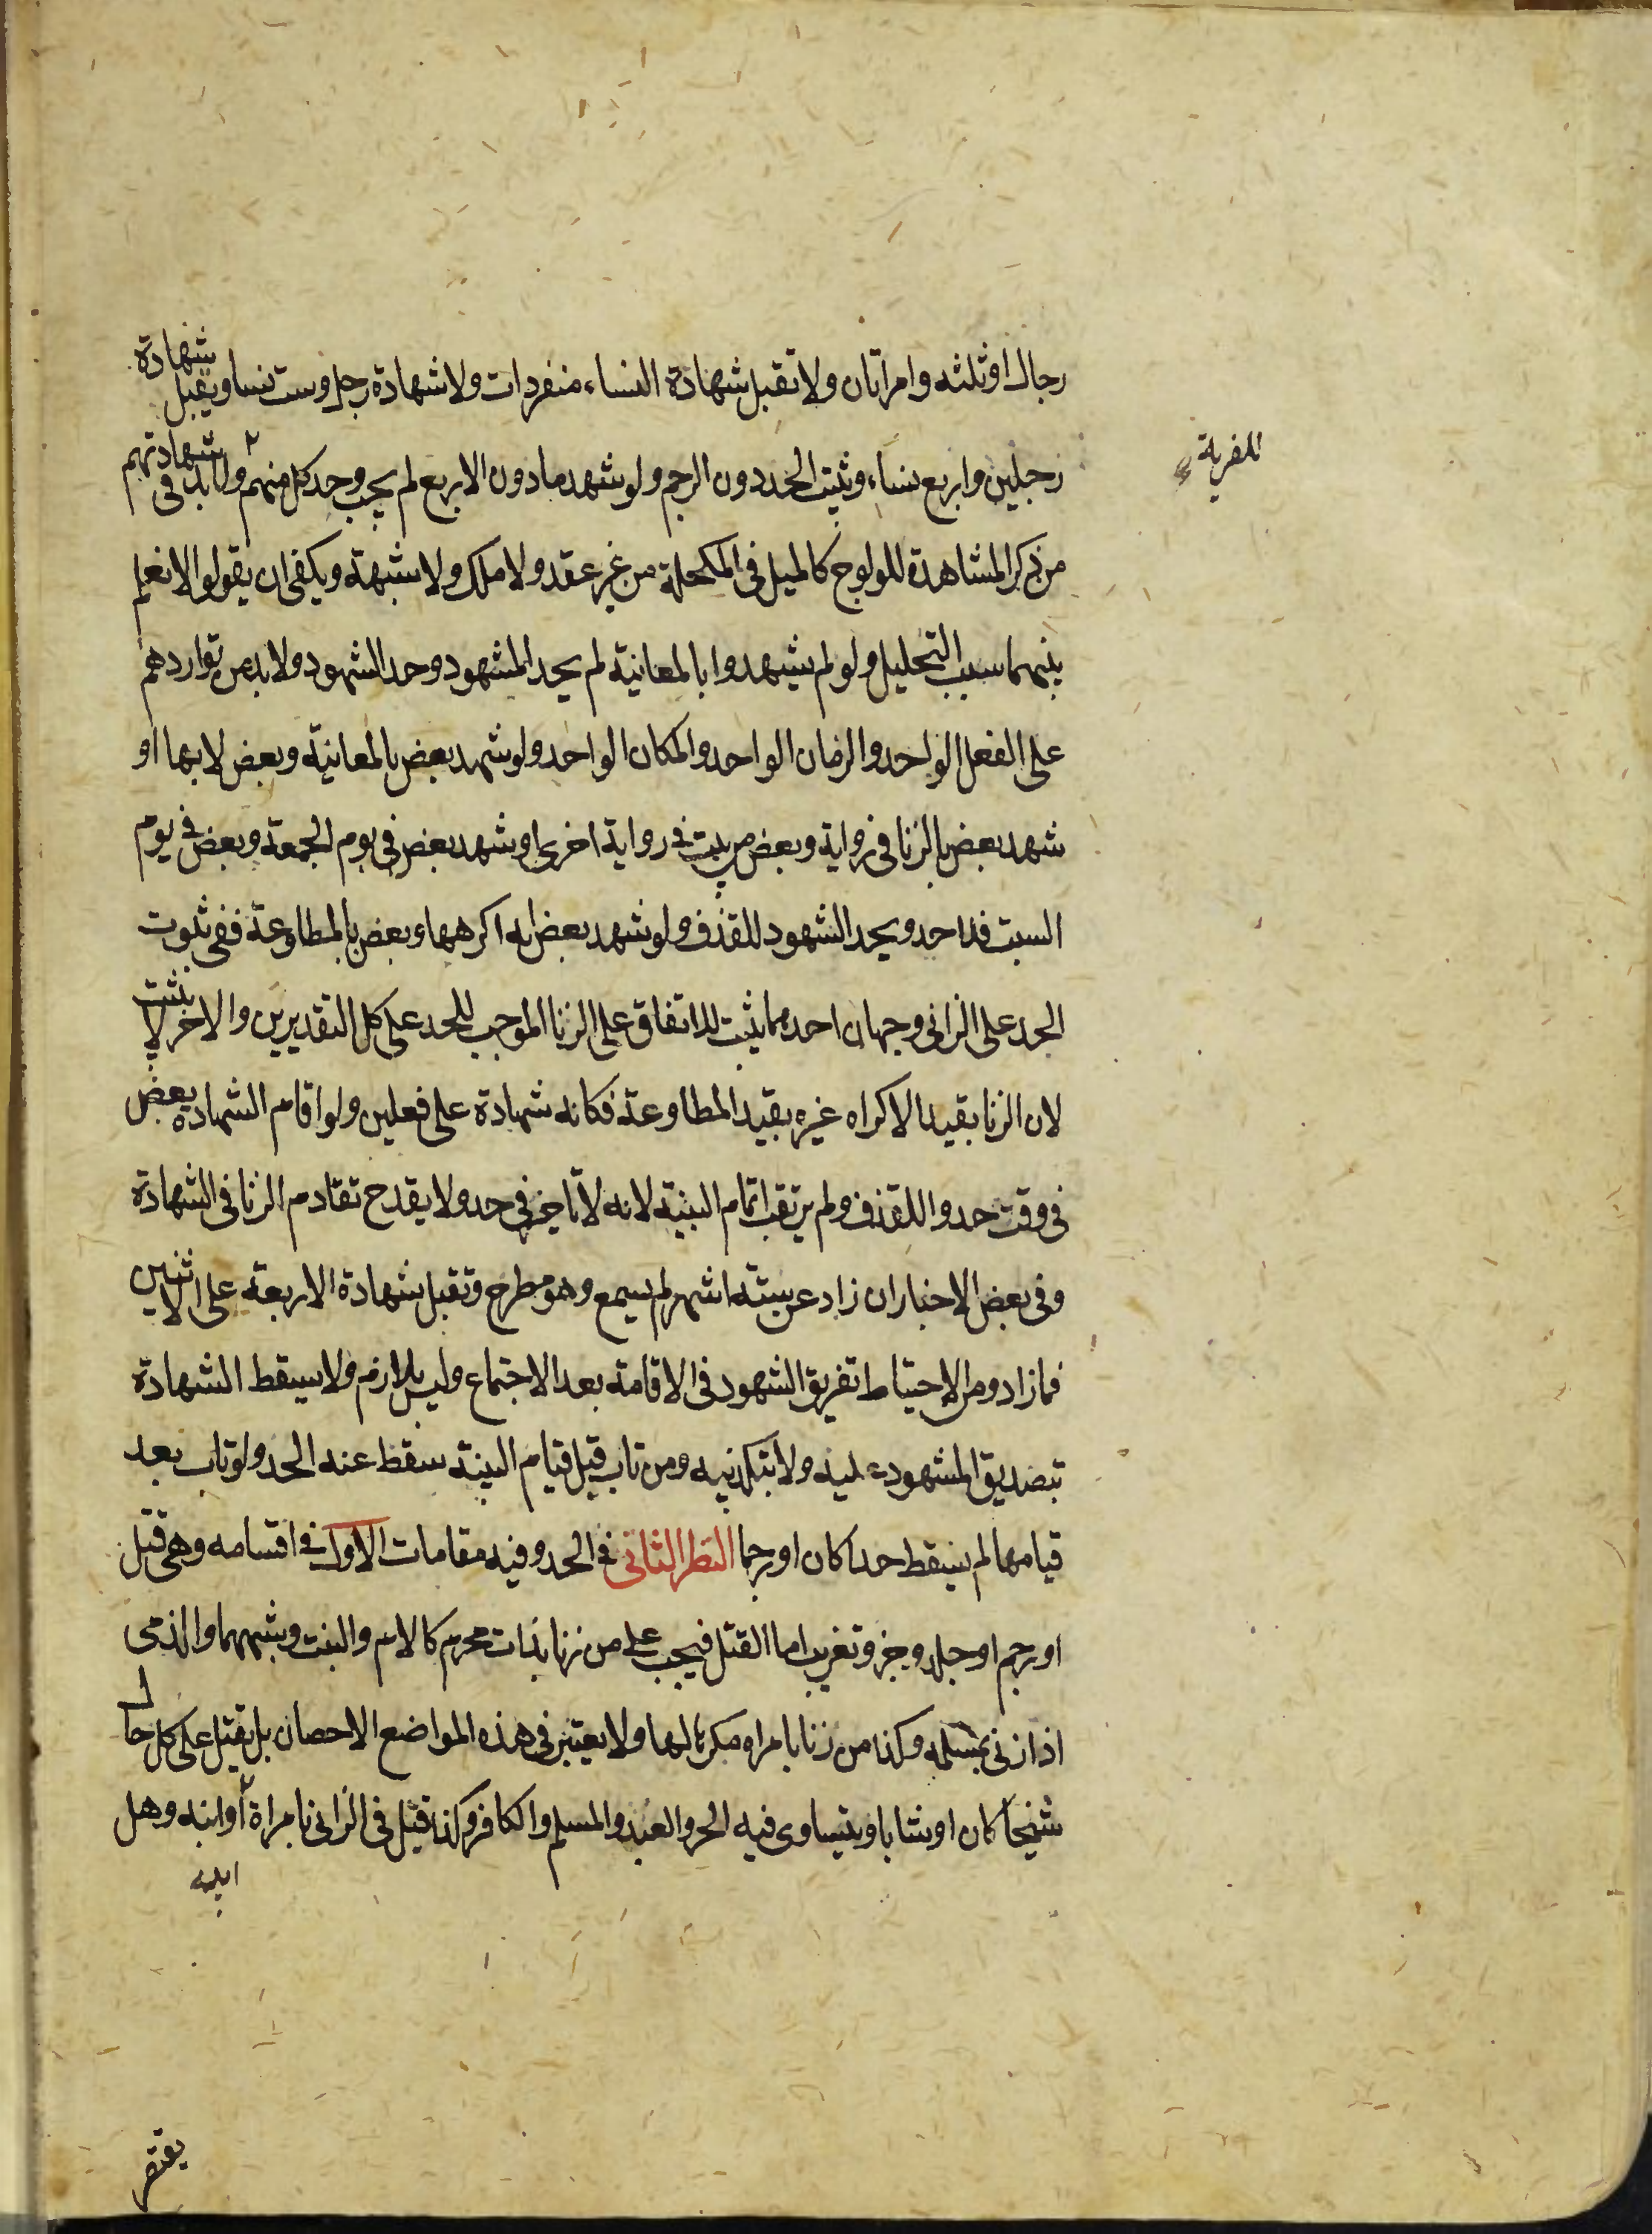 رجال او ثلثه وامراتان ولا تقبل شهادة النساء منفردات ولا شهادة رجل وست نسا ويقبل شهادة
رجلين واربع نساء ويثبت الحد دون الرجم ولو شهد مادون الاربع لم يجب وحد كل منهم ولا بد فى شهادتهم
للفرية
من ذكر المشاهدة للولوج كالميل فى المكحلة من غير عقد ولا ملك ولا شبهة ويكفى ان يقولوا لا نعلم
بينهما سبب التحليل ولو لم يشهدوا بالمعاينة لم يحد المشهود وحد الشهود ولا بد من تواردهم
على الفعل الواحد والزمان الواحد والمكان الواحد ولو شهد بعض بالمعاينة وبعض لا بها او
شهد بعض بالزنا فى زواية وبعض من بيت فى رواية اخرى او شهد بعض فى يوم الجمعة وبعض فى يوم
السبت فلا حد ويحد الشهود للقذف ولو شهد بعض انه اكرهها وبعض بالمطاوعة ففى ثبوت
الحد على الزانى وجهان احدهما يثبت للاتفاق على الزنا الموجب للحد على كل التقديرين والاخر لا يثبت
لان الزنا بقيد الاكراه غيره بقيد المطاوعة فكانه شهادة على فعلين ولو اقام الشهادة بعض
فى وقت حدوا للقذف ولم يرتقب اتمام البينة لانه لا تاخير فى حد ولا يقدح تقادم الزنا فى الشهادة
وفى بعض الاخبار ان زاد عن ستة اشهر لم يسمع وهو مطرح وتقبل شهادة الاربعة على الاثنين
فما زاد ومن الاحتياط تفريق الشهود فى الاقامة بعد الاجتماع وليس بلازم ولا يسقط الشهادة
بتصديق المشهود عليه ولا بتكذيبه ومن تاب قبل قيام البينة سقط عنه الحد ولو تاب بعد
قيامها لم يسقط حدا كان او رجما النظر الثانى فى الحد وفيه مقامات الاول فى اقسامه وهى قتل
او رجم او جلد وجز وتغريب اما القتل فيجب على من زنا بذات محرم كالام والبنت وشبههما والذمى
اذا زنى بمسلمه وكذا من زنا بامراه مكرها لها ولا يعتبر فى هذه المواضع الاحصان بل يقتل على كل حال
شيخا كان او شابا ويتساوى فيه الحر والعبد والمسلم والكافر وكذا قيل فى الزانى بامراة أو ابنه وهل
ابيه
يقتصر